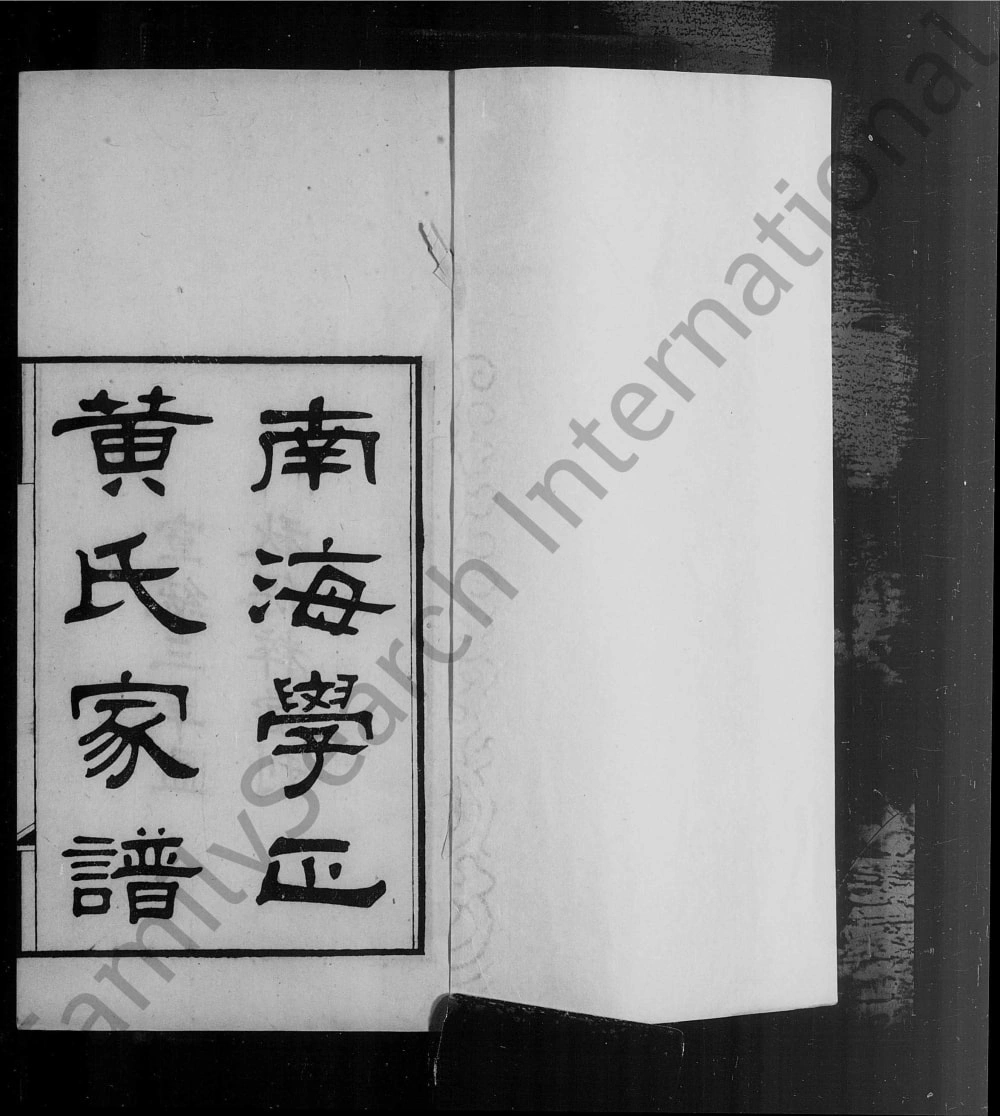 南海學正
黃氏家譜
FamilySearch International